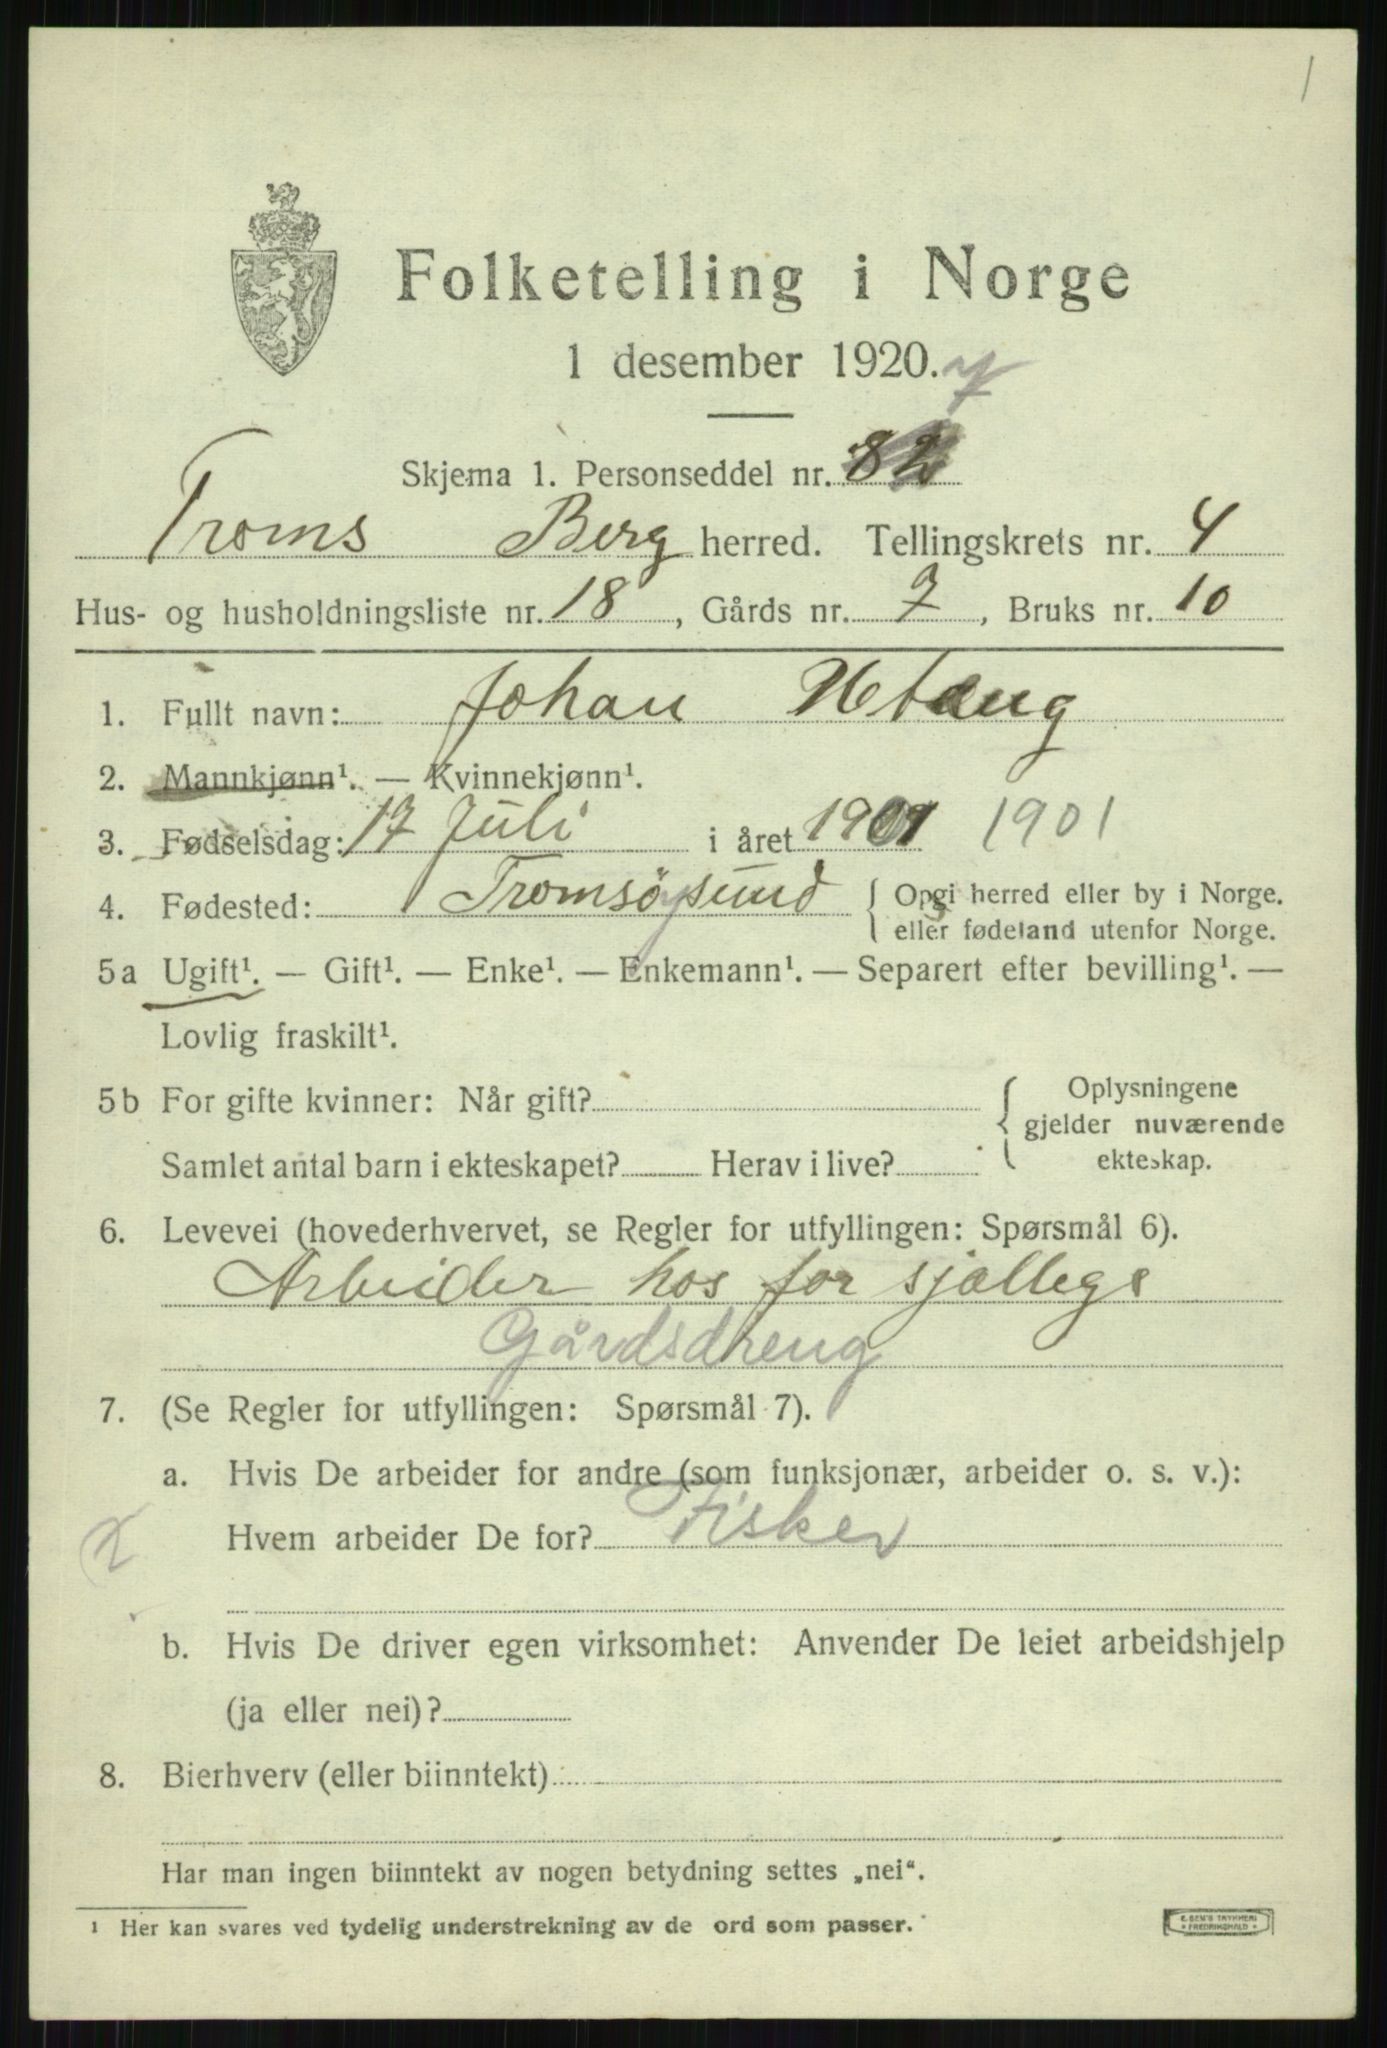 1
Folketelling i Norge
1 desember 1920.
7
Skjema 1. Personseddel nr. 82
Troms Berg herred. Tellingskrets nr. 4
Hus- og husholdningsliste nr. 18, Gårds nr. 7, Bruks nr. 10
1. Fullt navn: Johan
2. Mannkjønn¹. — Kvinnekjønn¹.
3. Fødselsdag: 17 Juli i året 1901 1901
4. Fødested: Tromsøysund { Opgi herred eller by i Norge.
eller fødeland utenfor Norge.
5a Ugift¹. — Gift¹. — Enke¹. — Enkemann¹. — Separert efter bevilling¹. —
Lovlig fraskilt¹.
5b For gifte kvinner: Når gift? { Oplysningene
gjelder nuværende
Samlet antal barn i ekteskapet? Herav i live? ekteskap.
6. Levevei (hovederhvervet, se Regler for utfyllingen: Spørsmål 6).
Arbeider hos for sjøllege
Gårdsdreng
7. (Se Regler for utfyllingen: Spørsmål 7).
a. Hvis De arbeider for andre (som funksjonær, arbeider o. s. v.):
Hvem arbeider De for? Fisker
b. Hvis De driver egen virksomhet: Anvender De leiet arbeidshjelp
(ja eller nei)?
8. Bierhverv (eller biinntekt)
Har man ingen biinntekt av nogen betydning settes „nei“.
¹ Her kan svares ved tydelig understrekning av de ord som passer.
E. SEM'S TRYKKERI
FREDRIKSHALD